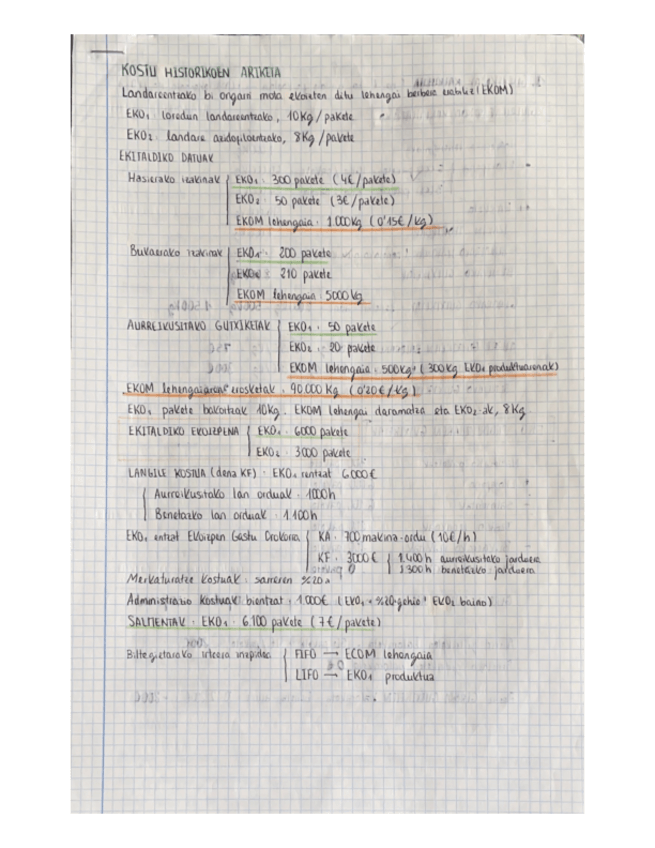 KOSTU HISTORIKOEN ARIKETA
Landareentzako bi ongarri mota ekoizten ditu lehengai berbera erabiliz (EKOM)
EKO₁ loredun landareentzako, 10Kg/pakete
EKO₂ landare azidofiloentzako, 8Kg/pakete
EKITALDIKO DATUAK
Hasierako izakinak EKO₁ · 300 pakete (4€/pakete)
EKO₂ · 50 pakete (3€/pakete)
EKOM lehengaia · 1.000Kg (0'15€/kg)
Bukaerako izakinak EKO₁ · 200 pakete
EKO₂ · 210 pakete
EKOM lehengaia · 5000 Kg
AURREIKUSITAKO GUTXIKETAK EKO₁ · 50 pakete
EKO₂ · 20 pakete
EKOM lehengaia · 500Kg (300Kg EKO₁ produktuarenak)
EKOM lehengaiaren erosketak · 90.000 Kg (0'20€/Kg)
EKO₁ pakete bakoitzak 10Kg. EKOM lehengai daramatza eta EKO₂-ak, 8Kg
EKITALDIKO EKOIZPENA EKO₁ · 6000 pakete
EKO₂ · 3000 pakete
LANGILE KOSTUA (dena KF) · EKO₁ rentzat 6.000€
Aurreikusitako lan orduak · 1000h
Benetazko lan orduak · 1.100h
EKO₁ entzat Ekoizpen Gastu Orokorra KA · 700 makina-ordu (10€/h)
KF · 3000€ 1.400h aurreikusitako jarduera
1.300h benetazko jarduera
Merkaturatze kostuak · sarreren %20a
Administrazio kostuak bientzat · 1.000€ (EKO₁ · %20 gehio EKO₂ baino)
SALMENTAK · EKO₁ · 6.100 pakete (7€/pakete)
Biltegietarako irteera irizpidea FIFO → ECOM lehengaia
LIFO → EKO₁ produktua